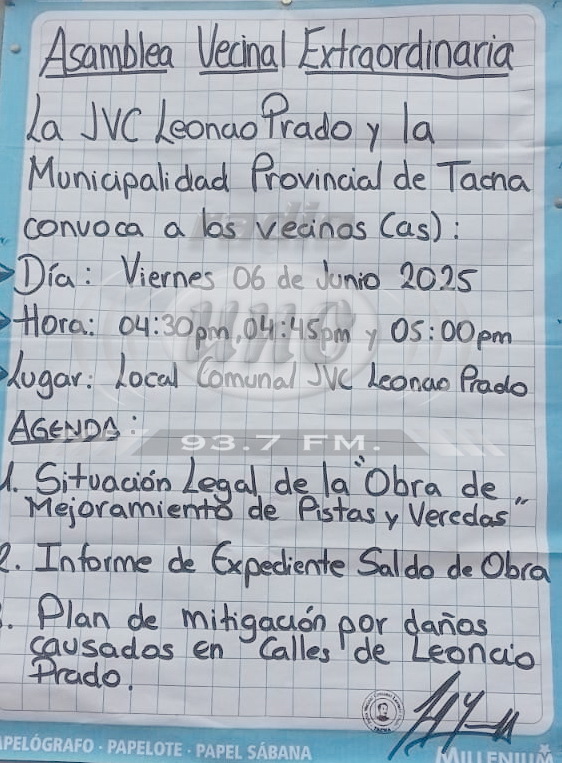 Asamblea Vecinal Extraordinaria
La JVC Leoncio Prado y la
Municipalidad Provincial de Tacna
convoca a los vecinos (as):
Día: Viernes 06 de Junio 2025
Hora: 04:30pm, 04:45pm y 05:00pm
Lugar: Local Comunal JVC Leoncio Prado
AGENDA:
1. Situación Legal de la "Obra de
Mejoramiento de Pistas y Veredas"
2. Informe de Expediente Saldo de Obra
. Plan de mitigación por daños
causados en Calles de Leoncio
Prado.
radio
uno
93.7 FM.
PELÓGRAFO · PAPELOTE · PAPEL SÁBANA
MILLENIUM